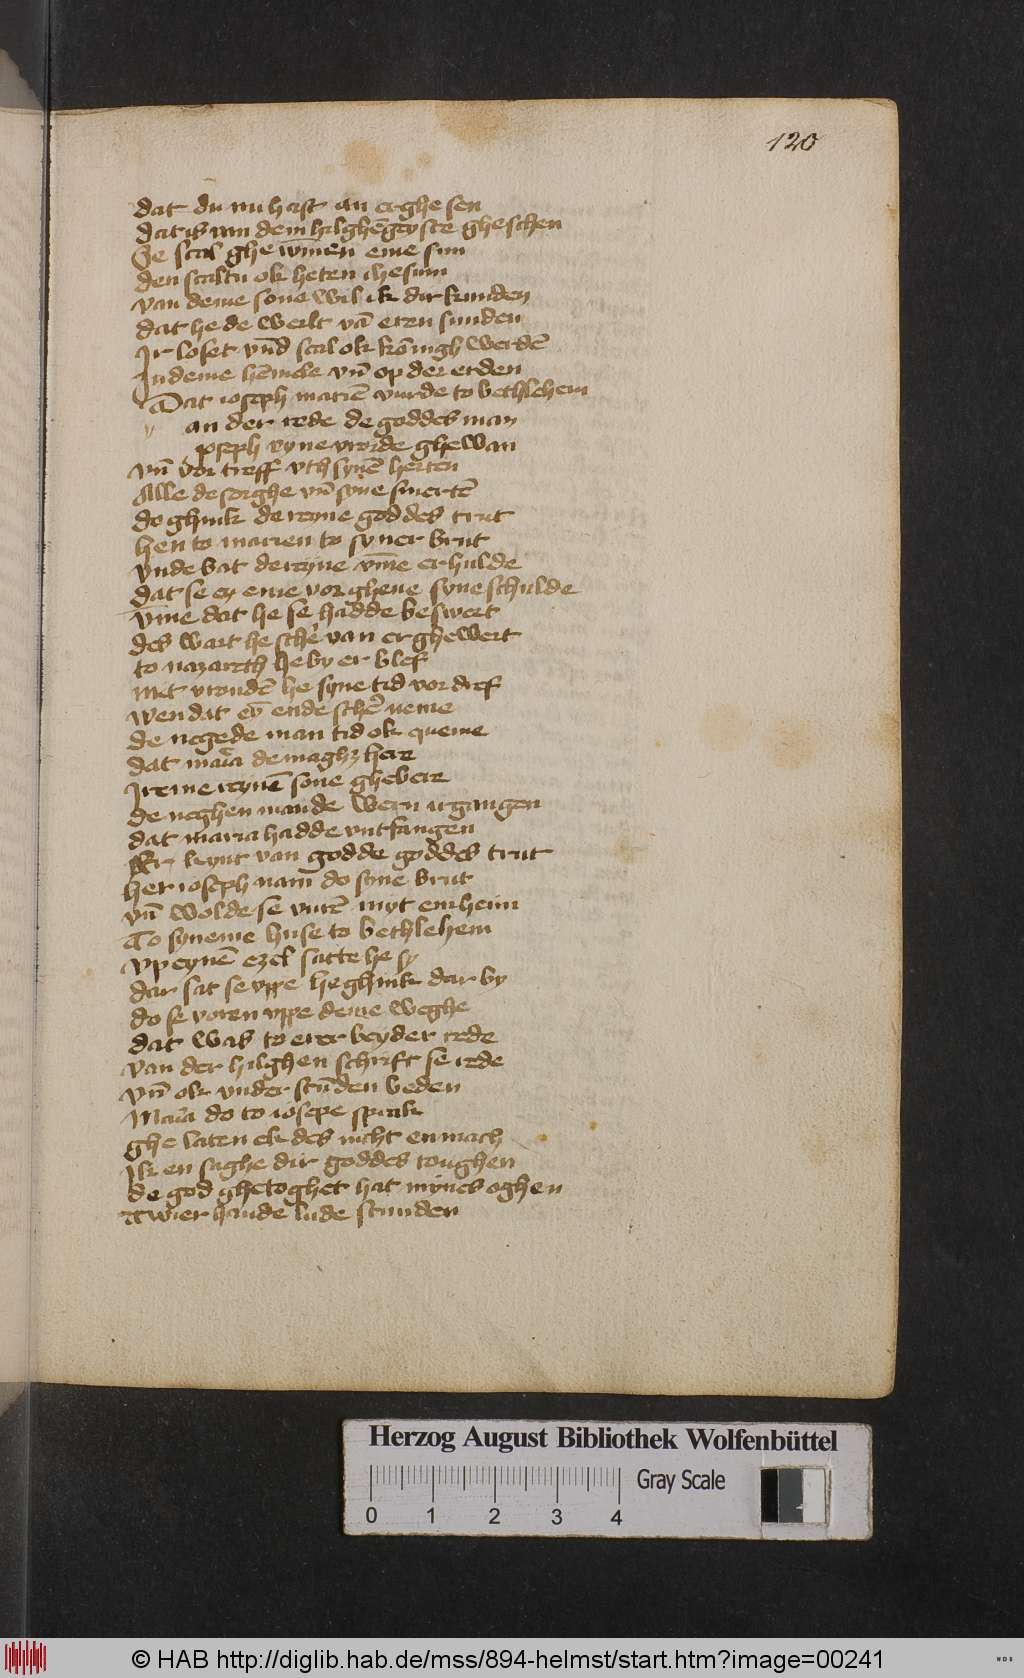 120
dat du nu hast an erghesen
dat is van dem hilghē geyste gheschen
Se scal ghe winnen eine sun
den scaltu ok heten ihesum
van deme sone wil ik dir kunden
dat he de werlt vā eren sunden
Ir loset vn̄d scal ok kōningh werdē
In deme hēmele vn̄ op der erden
Dat ioseph mariē vurde to bethlehem
an der rede de goddes man
Joseph eyne vroide ghewan
vn̄ vor treff vth synē herten
Alle de sorghe vn̄ syne smertē
do ghink de reyne goddes trut
hen to marien to syner brut
vnde bat de reyne vm̄e er hulde
dat se ey eme vor gheue syne schulde
vm̄e dat he se hadde beswert
des wart he schē van er ghewert
to nazareth he by er blef
mit vroudē he syne tid vor dref
wen dat eȳ ende schē neme
de negede man tid ok queme
dat maria de maghz here
Ireme reynē sone ghebere
de neghen mande wern irgangen
dat maria hadde vntfangen
Er kynt van godde goddes trut
her ioseph nam do syne brut
vn̄ wolde se vurē myt em heim
To syneme huse to bethlehem
vp eynē ezel satte he sy
dar sat se vppe he ghink dar by
do se voren vppe deme weghe
dat was to erer beyder rede
van der hilghen schrift se rede
vn̄ ok vnder stūden beden
Maria do to iosepe sprak
ghe laten ek des nicht en mach
Ik en saghe dir goddes toughen
de god ghetoghet hat mynes oghen
Twier hande lude stunden
Herzog August Bibliothek Wolfenbüttel
0 1 2 3 4
Gray Scale
© HAB http://diglib.hab.de/mss/894-helmst/start.htm?image=00241